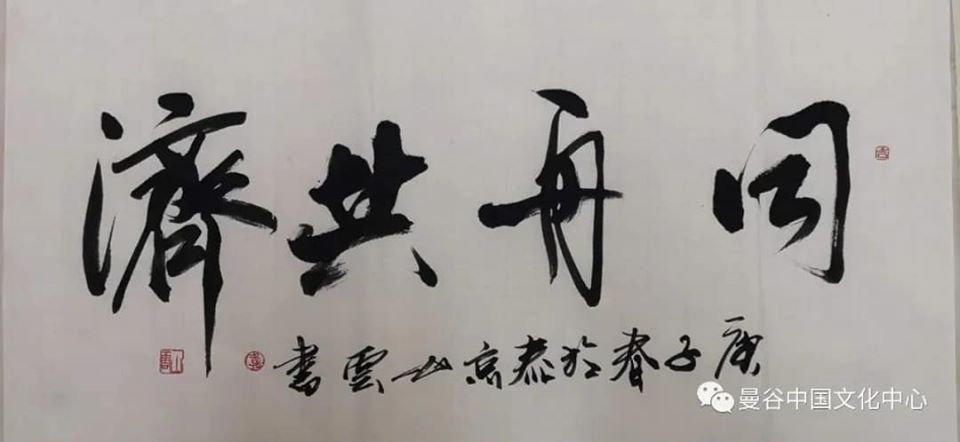 同舟共濟
庚子春於泰京山雲書
曼谷中国文化中心